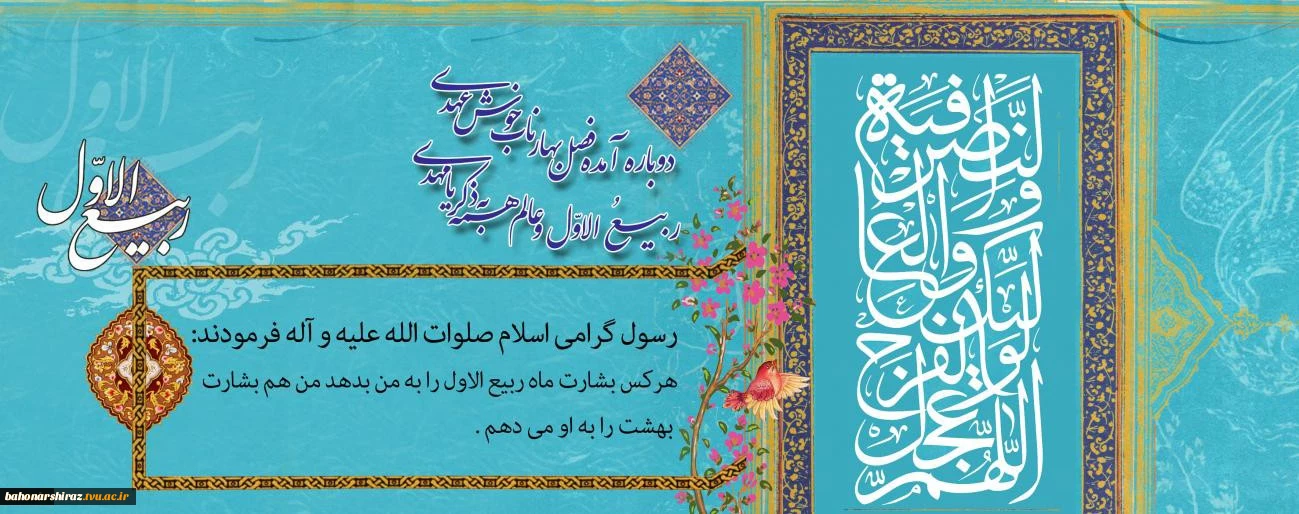 اللّهمّ عجّل لوليّك الفرج والعافية والنّصر
دوباره آمده فصل بهار ناب خوش عهدی
ربیعُ الاوّل و عالم همه به ذکر یا مهدی
ربیع الاوّل
ربیع الاوّل
رسول گرامی اسلام صلوات الله علیه و آله فرمودند:
هرکس بشارت ماه ربیع الاول را به من بدهد من هم بشارت
بهشت را به او می دهم .
bahonarshiraz.tvu.ac.ir